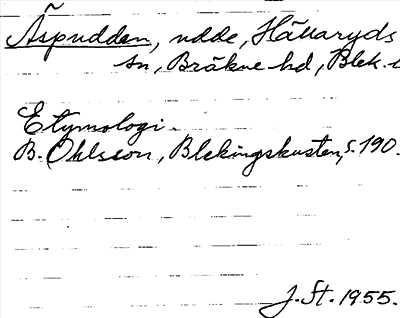 Äspudden, udde, Hällaryds
sn, Bräkne hd, Blek.
Etymologi.
B. Ohlsson, Blekingskusten, s. 190.
J. St. 1955.